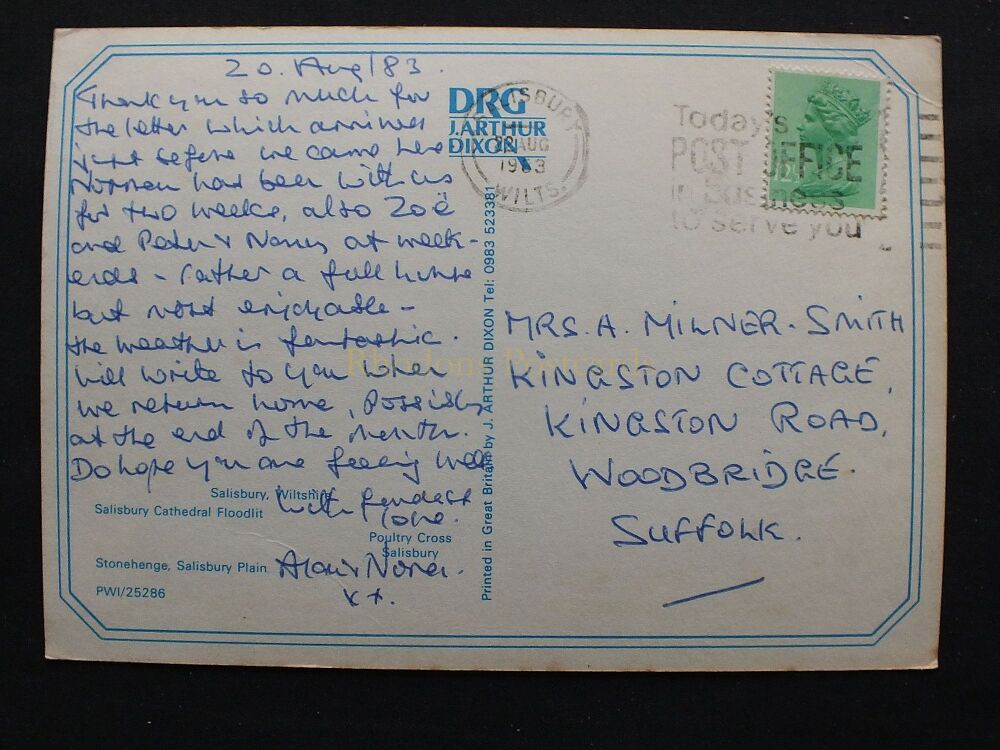 20. Aug/83.
Thank you so much for
the letter which arrived
just before we came here
Norman has been with us
for two weeks, also Zoë
and Peter & Nancy at week-
ends - rather a full house
but most enjoyable -
the weather is fantastic.
Will write to you when
we return home, possibly
at the end of the month.
Do hope you are feeling well
With fondest
love.
Nora.
x x.
Salisbury, Wiltshire
Salisbury Cathedral Floodlit
Poultry Cross
Salisbury
Stonehenge, Salisbury Plain
PWI/25286
DRG
J.ARTHUR
DIXON
Printed in Great Britain by J. ARTHUR DIXON Tel: 0983 523381
SALISBURY
22 AUG
1983
WILTS.
Today's
POST OFFICE
in Business
to serve you
MRS. A. MILNER-SMITH
KINGSTON COTTAGE,
KINGSTON ROAD,
WOODBRIDGE.
SUFFOLK.